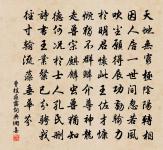 天地無窮極陰陽轉相
因人居一世間忽若風
吹塵願得展功勤輸力
於明君懷此王佐才慷
慨獨不群鱗介尊神龍
走獸宗麒麟蟲獸猶知
德何況於士人孔氏刪
詩書王業粲已分騁我
徑寸翰流藻垂華芬